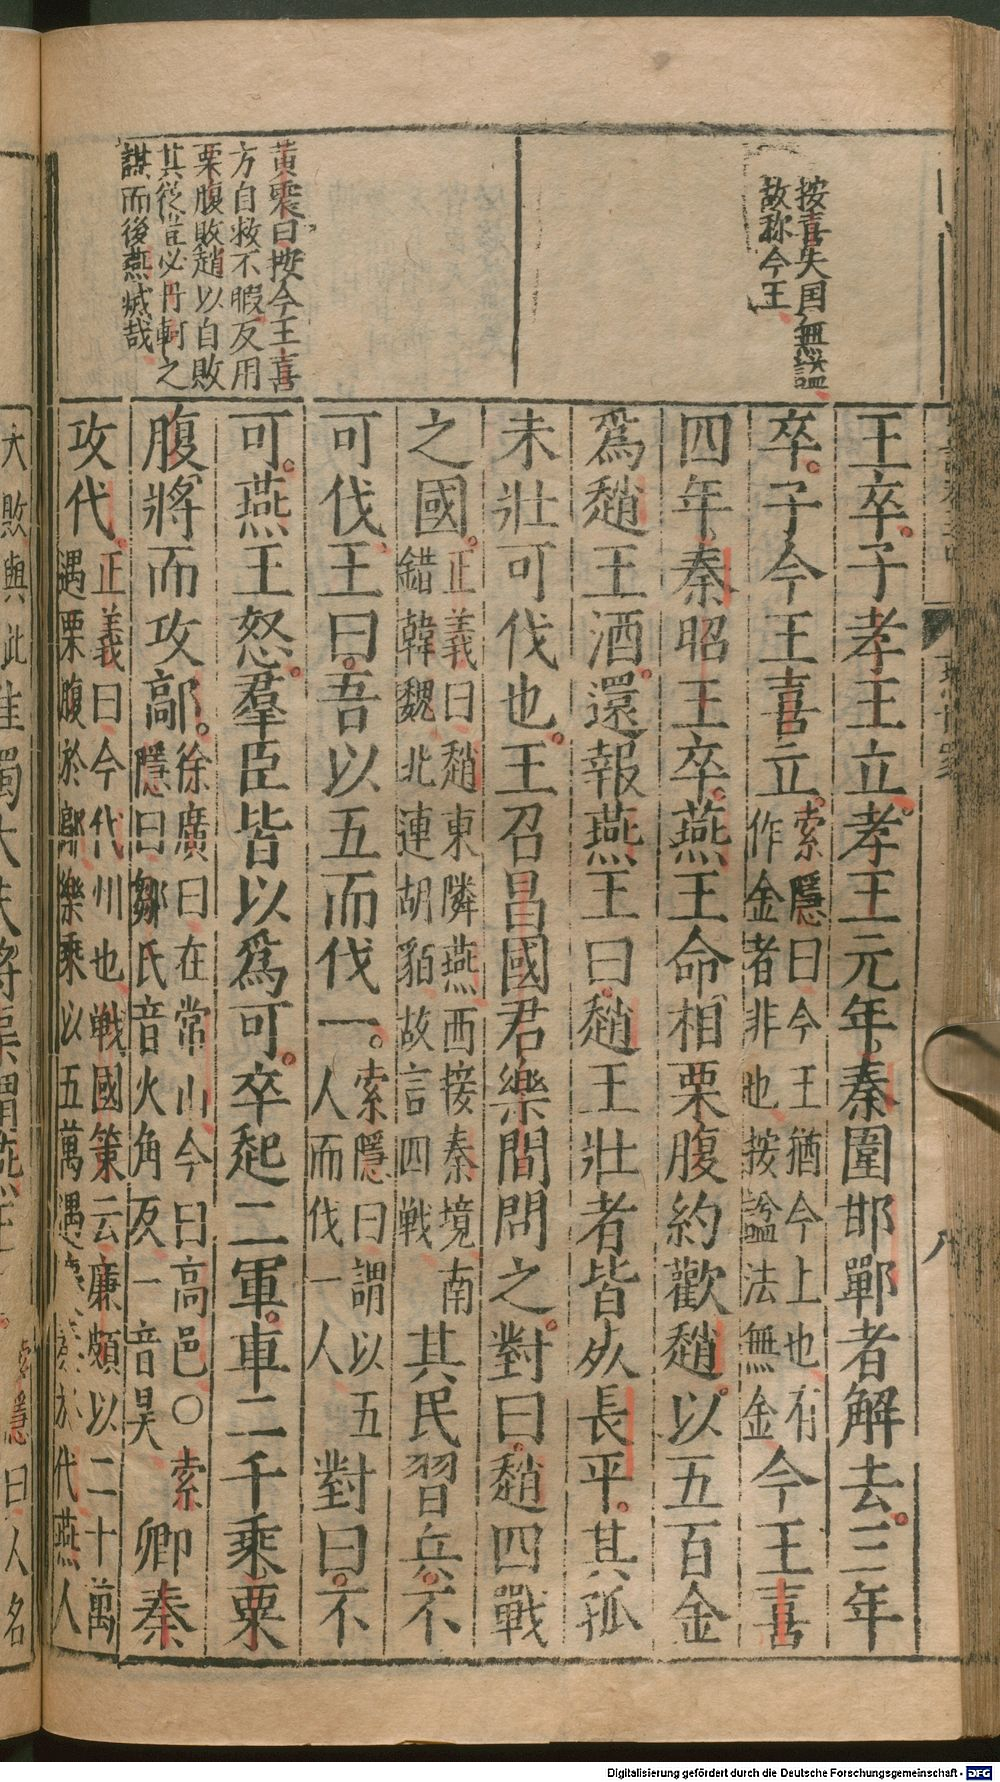 按喜失国無謚
故称今王
黄震曰按今王喜
方自救不暇反用
栗腹敗趙以自敗
其從豈必丹軻之
謀而後燕滅哉
王卒子孝王立孝王元年秦圍邯鄲者解去三年
卒子今王喜立
索隱曰今王猶今上也有
作金者非也按謚法無金
今王喜
四年秦昭王卒燕王命相栗腹約歡趙以五百金
爲趙王酒還報燕王曰趙王壯者皆死長平其孤
未壯可伐也王召昌國君樂間問之對曰趙四戰
之國
正義曰趙東隣燕西接秦境南
錯韓魏北連胡貊故言四戦
其民習兵不
可伐王曰吾以五而伐一
索隱曰謂以五
人而伐一人
對曰不
可燕王怒羣臣皆以爲可卒起二軍車二千乘栗
腹將而攻鄗
徐廣曰在常山今曰高邑○索
隱曰鄒氏音火角反一音昊
卿秦
攻代
正義曰今代州也戦國策云廉頗以二十萬
遇栗腹於鄗樂乘以五萬遇
代燕人
大敗與此
索隱曰人名
Digitalisierung gefördert durch die Deutsche Forschungsgemeinschaft - DFG